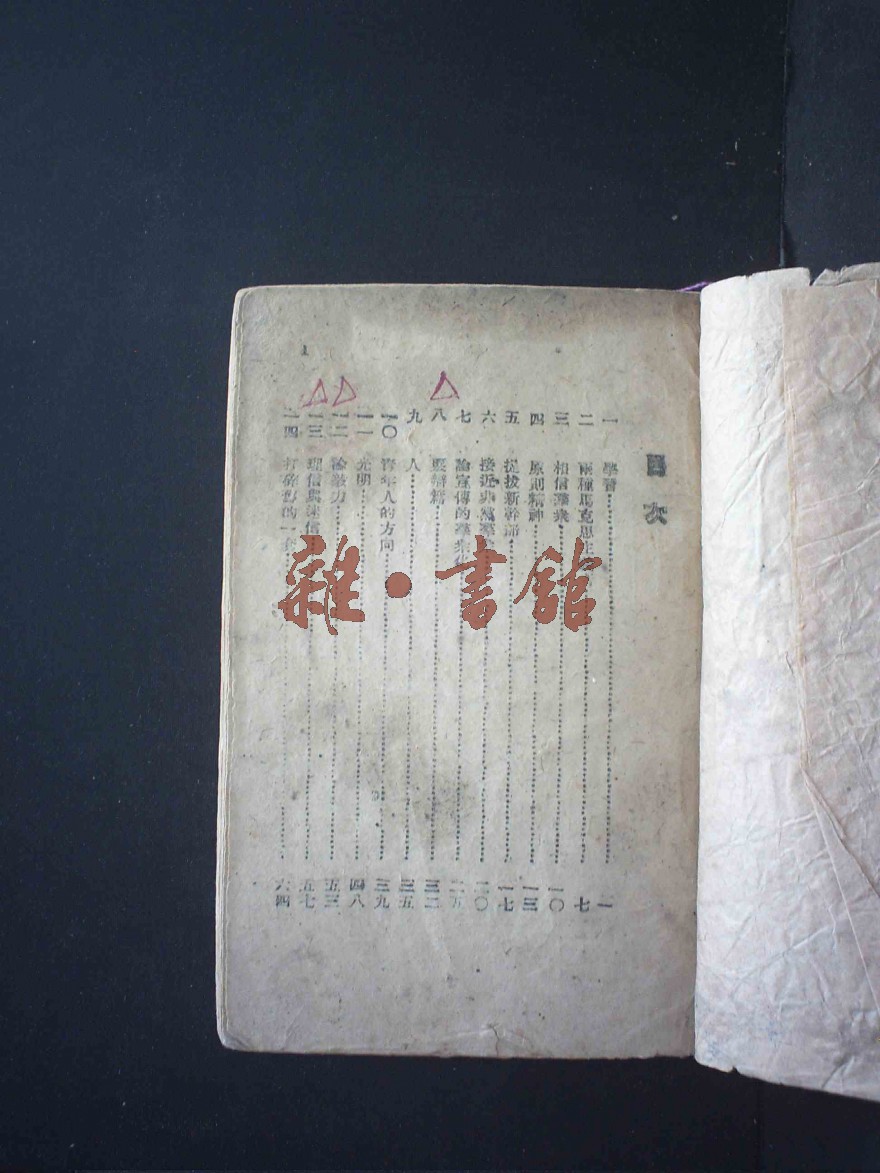 目次
一 學習 一
二 兩種馬克思主 七
三 相信羣衆 一〇
四 原則精神 一三
五 提拔新幹部 一七
六 接近非黨羣 二〇
七 論宣傳的羣衆 二五
八 要精 三二
九 人 三五
一〇 青年人的方向 三九
一一 光明 四八
一二 論毅力 五三
一三 理信與迷信 五七
一四 打碎舊的一套 六四
雜·書館